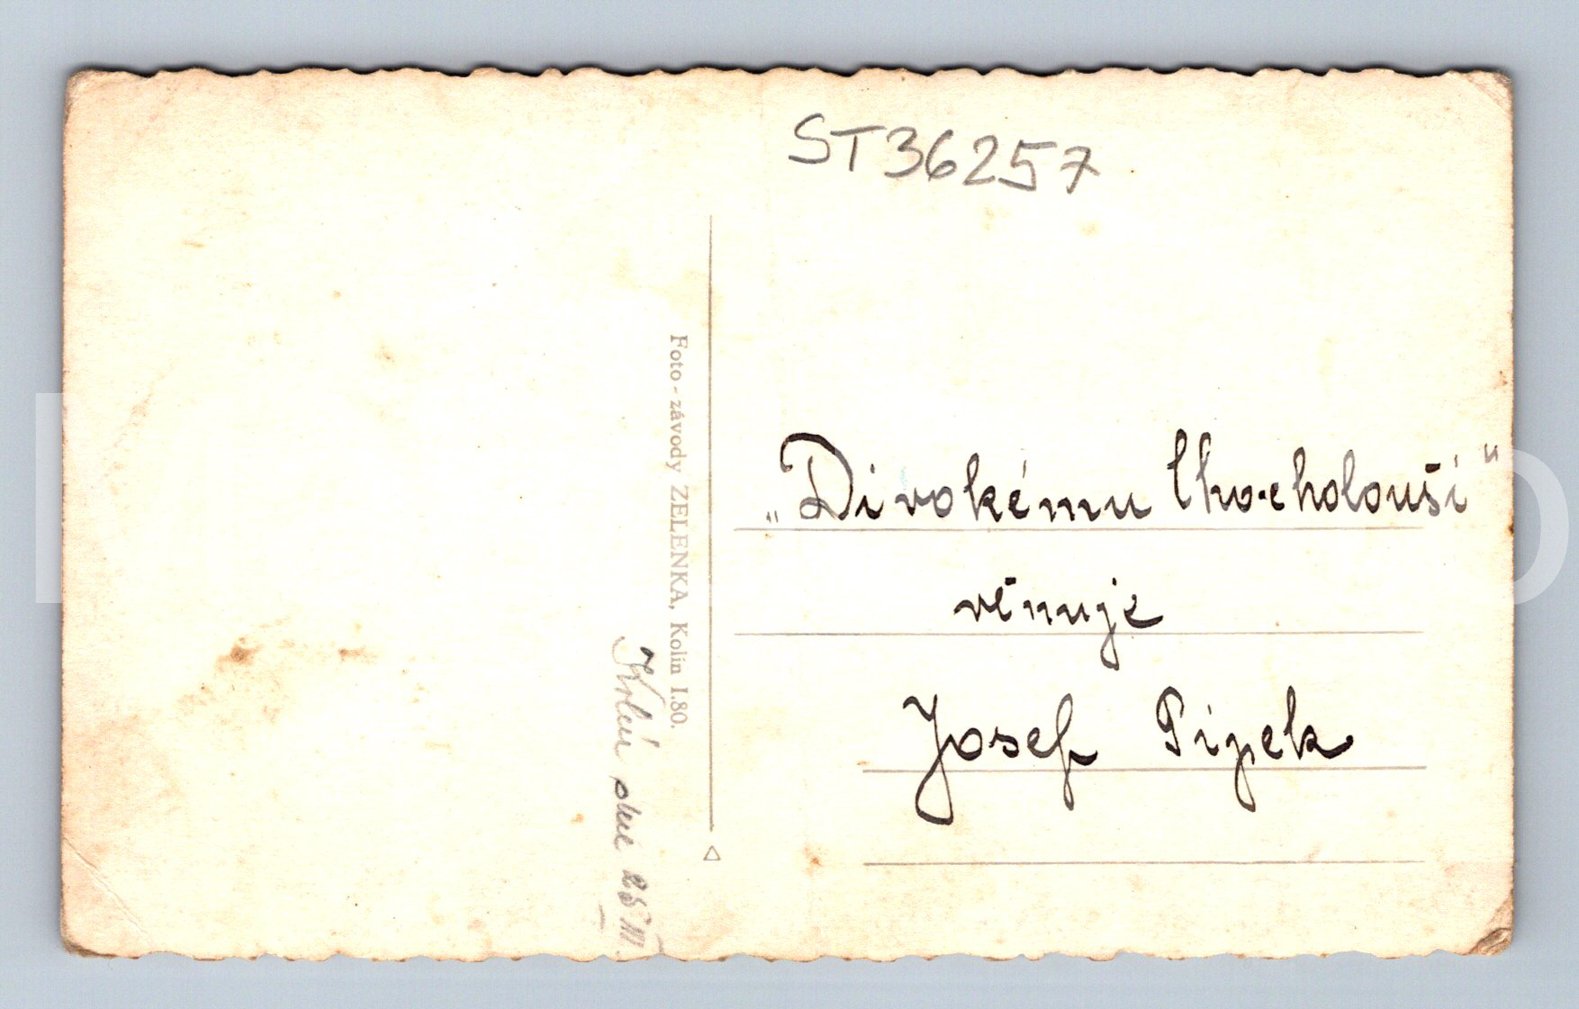 ST36257
Foto - závody ZELENKA, Kolín I.80.
Kolín dne 25 III.
„Divokému Chocholouši"
věnuje
Josef Pizek